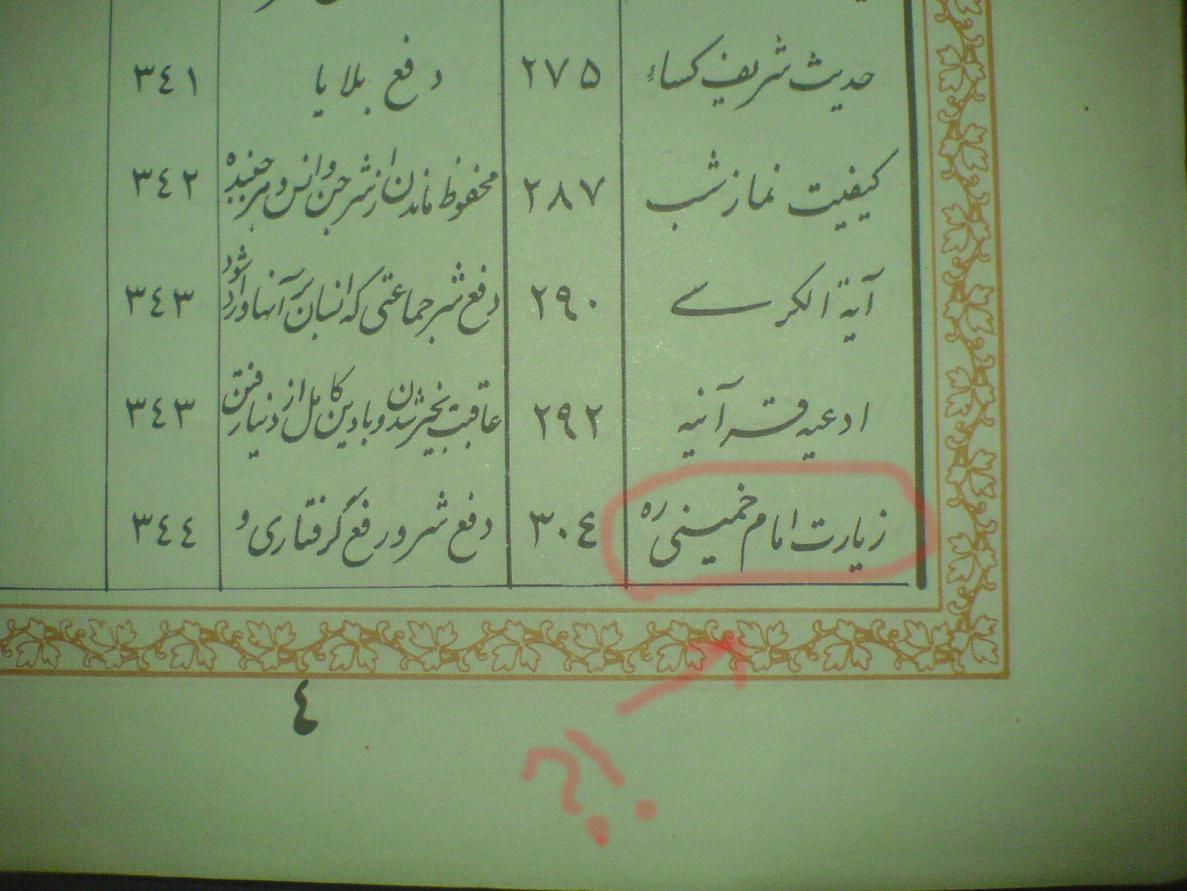 حدیث شریف کساء ۲۷۵ دفع بلایا ۳٤۱
کیفیت نماز شب ۲۸۷ محفوظ ماندن از شر جن وانس و هر جنبنده ۳٤۲
آیة الکرسے ۲۹۰ دفع شر جماعتی که انسان بر آنها وارد شود ۳٤۳
ادعیه قرآنیه ۲۹۲ عاقبت بخیر شدن و با دین کامل از دنیا رفتن ۳٤۳
زیارت امام خمینی ره ۳۰٤ دفع شر و رفع گرفتاری و ۳٤٤
٤
?!